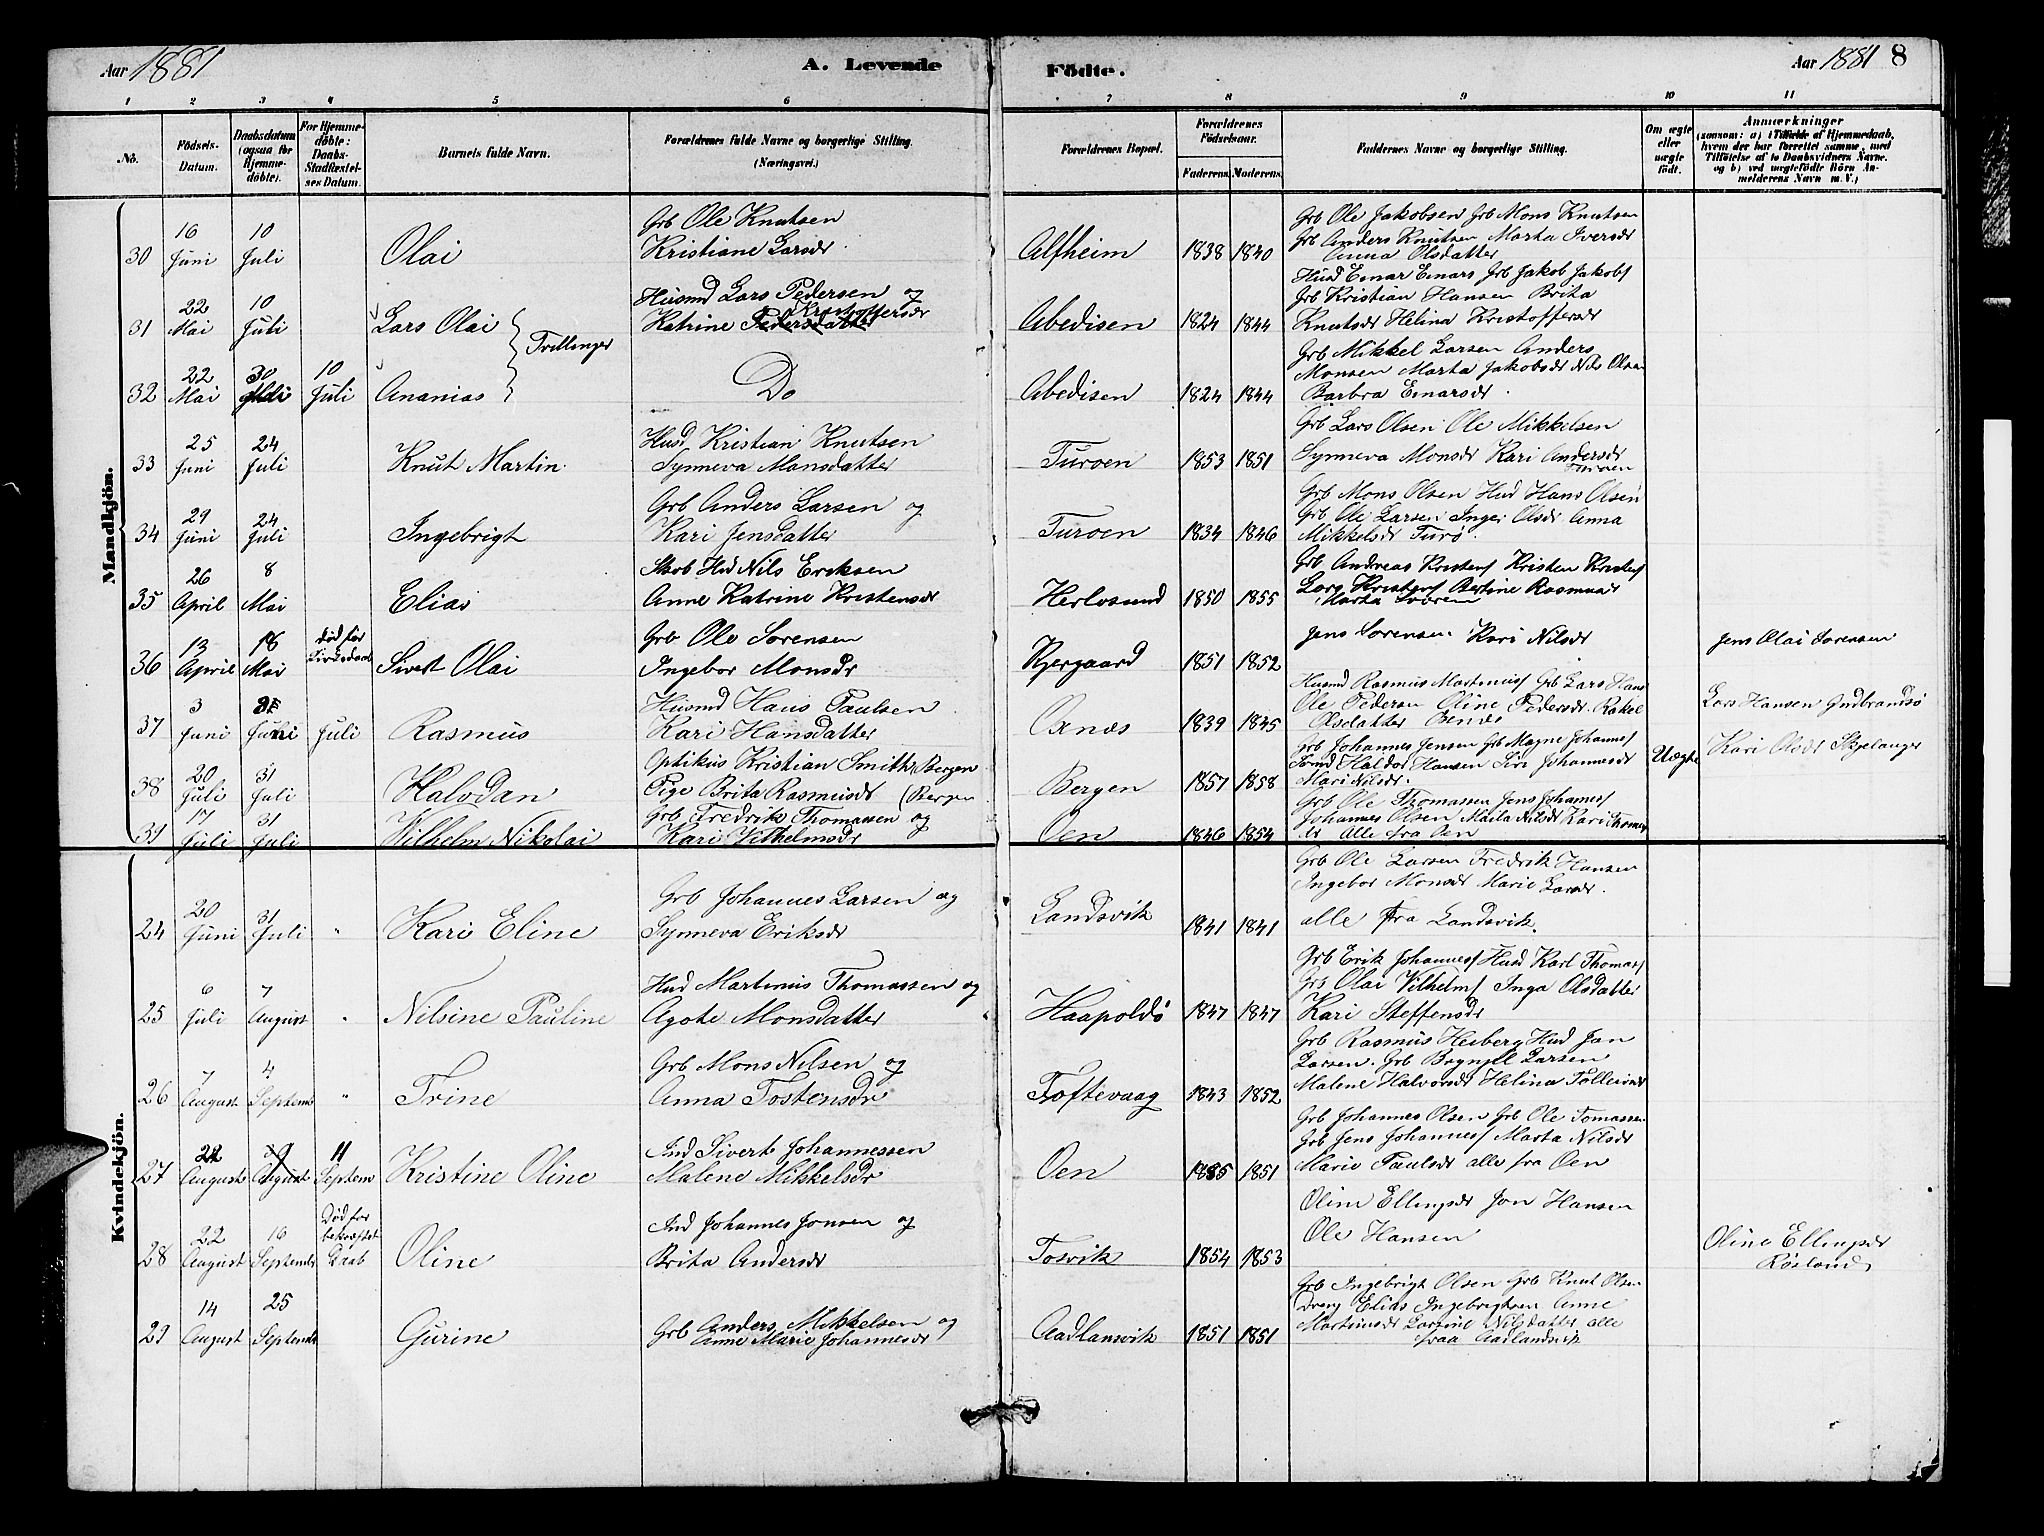 Aar 1881
A. Levende
Födte.
Aar 1881 8
1 2 3 4 5 6 7 8 9 10 11
No.
Födsels-
Datum.
Daabsdatum
(ogsaa for
Hjemme-
döbte).
For Hjemme-
döbte:
Daabs-
Stadfæstel-
ses Datum.
Barnets fulde Navn.
Forældrenes fulde Navne og borgerlige Stilling.
(Næringsvei.)
Forældrenes Bopæl.
Forældrenes
Födselsaar.
Faderens. Moderens.
Faddernes Navne og borgerlige Stilling.
Om ægte
eller
uægte
født.
Anmærkninger
(saasom: a) i Tilfælde af Hjemmedaab,
hvem der har forrettet samme, med
Tilföielse af to Daabsvidners Navne.
og b) ved uægtefödte Börn An-
melderens Navn m. V.)
Mandkjön.
30
16
Juni
10
Juli
Olai
Grb Ole Knutsen
Kristiane Larsdr
Alfheim
1838 1840
Grb Ole Jakobsen Grb Mons Knutsen
Grb Anders Knutsen Marta Iversdr
Anna Olsdatter
31
22
Mai
10
Juli
Lars Olai
Tvillinger
Husmd Lars Pedersen og
Kristoffersdr
Katrine Pedersdatter
Abedisen
1824 1844
Husd Einar Einars Grb Jakob Jakobs
Grb Kristian Hansen Brita
Knutsdr Helina Kristoffersdr
32
22
Mai
30
10
Juli
Ananias
Do
Abedisen
1824 1844
Grb Mikkel Larsen Anders
Monsen Marta Jakobsdr Nils Olsen
Barbra Einarsdr
33
25
Juni
24
Juli
Knut Martin
Husd Kristian Knutsen
Synneva Monsdatter
Turoen
1853 1851
Grb Lars Olsen Ole Mikkelsen
Synneva Monsdr Kari Andersdr
Turoen
34
29
Juni
24
Juli
Ingebrigt
Grb Anders Larsen og
Kari Jensdatter
Turoen
1834 1846
Grb Mons Olsen Hud Hans Olsen
Grb Ole Larsen Inger Olsdr Anna
Mikkelsdr Turö
35
26
April
8
Mai
Elias
Hud Nils Eriksen
Anne Katrine Kristensdr
Herlosund
1850 1855
Grb Andreas Kristens Kristen Kristens
Lars Kristens Bertine Rasmusdr
Marta
36
13
April
16
Mai
Död för
Sivert Olai
Grb Ole Sorensen
Ingebor Monsdr
Kjergaard
1851 1852
Jens Sorensen Kari Nilsdr
Jens Olai Sorensen
37
3
Juni
Juli
Rasmus
Husmd Hans Paulsen
Kari Hansdatter
Oxnæs
1839 1845
Husmd Rasmus Martinius Grb Lars Hans
Ole Pedersen Oline Pedersdr Rakel
Olsdatter
Lars Hansen Gudbrandsö
38
20
Juli
31
Juli
Halvdan
Optikus Kristian Smith Bergen
Pige Brita Rasmusdr (Bergen
Bergen
1857 1858
Grb Johannes Jensen Grb Magne Johannes
Haldor Hansen Siri Johannesdr
Mari Nilsdr
Uægte
Kari Olsdr Skjelanger
39
17
Juli
31
Juli
Wilhelm Nikolai
Grb Fredrik Thomassen og
Kari Vilhelmsdr
Oen
1846 1854
Grb Ole Thomassen Jens Johannes
Johannes Olsen Marta Nilsdr Kari Thomas
dr alle fra Oen
Kvindekjön.
24
20
Juni
31
Juli
"
Kari Eline
Grb Johannes Larsen og
Synneva Eriksdr
Landsvik
1841 1841
Grb Ole Larsen Fredrik Hansen
Ingebor Monsdr Marie Larsdr
alle fra Landsvik.
25
6
Juli
7
August
"
Nilsine Pauline
Hud Martinus Thomassen og
Agote Monsdatter
Haapoldö
1847 1847
Grb Erik Johannes Husd Karl Thomas
Grb Olai Vilhelms Inga Olsdatter
Kari Steffensdr
26
7
August
4
Septemb
"
Trine
Grb Mons Nilsen og
Anna Tostensdr
Toftevaag
1843 1852
Grb Rasmus Heiberg Hud Jan
Larsen Grb Brynjel Larsen
Malene Halvorsdr Helina Tolleivsdr
27
22
August
August
11
Septem
Kristine Oline
Ind Sivert Johannessen
Malene Mikkelsdr
Oen
1885 1851
Grb Johannes Olsen Grb Ole Tomassen
Grb Jens Johannes Marta Nilsdr
Marie Paulsdr alle fra Oen
28
22
August
16
Septembr
Död for
bekræftet
Daab
Oline
Ind Johannes Jonsen og
Brita Andersdr
Tosvik
1854 1853
Oline Ellingsdr Jon Hansen
Ole Hansen
Oline Ellingsdr
Rösland
29
14
August
25
Septembr
Gurine
Grb Anders Mikkelsen og
Anne Marie Johannesdr
Aadlansvik
1851 1851
Grb Ingebrigt Olsen Grb Knut Olsen
Dreng Elias Ingebrigtsen Anne
Martinsdr Larsine Nilsdatter alle
fraa Aadlandsvik